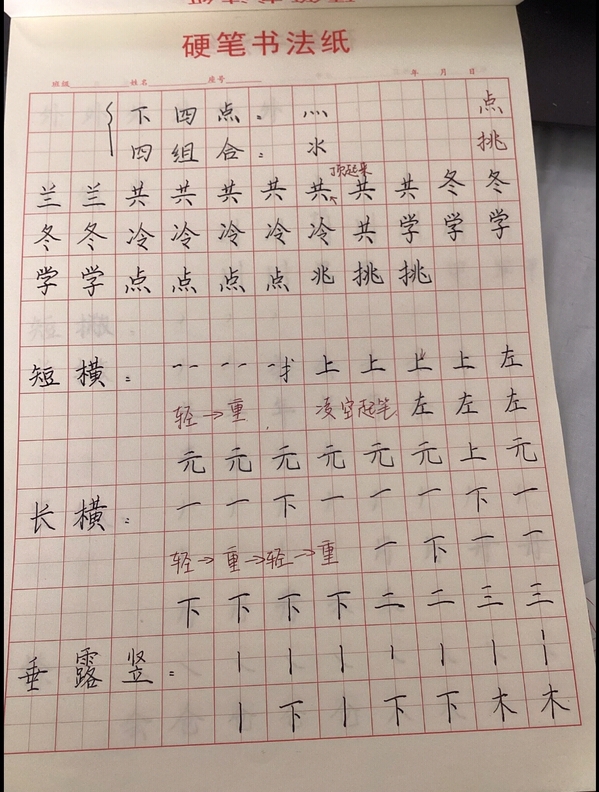 硬笔书法纸
班级 姓名 座号 年 月 日
下四点：灬 点
四组合： 挑
顶起来
兰兰共共共共共共共冬冬
冬冬冷冷冷冷冷共学学学
学学点点点点兆挑挑
短横：一一 一一 一扌上上上上左
轻→重 凌空起笔 左左左
元元元元元上元
长横：一一下一一一下一
轻→重→轻→重 一下一一
下下下下二二三三
垂露竖：丨丨丨丨丨丨丨
丨下丨下下木木